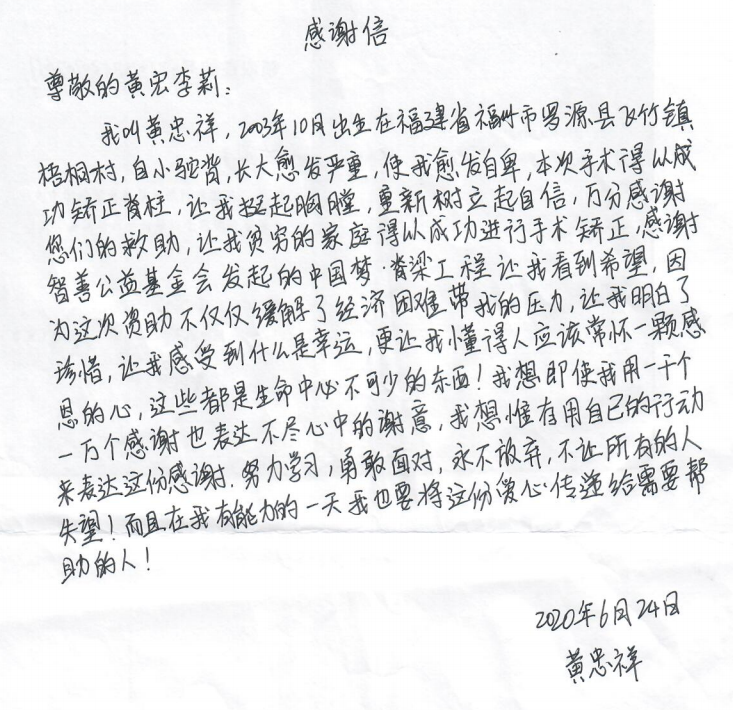 感谢信
尊敬的黄宏李莉：
我叫黄忠祥，2003年10月出生在福建省福州市罗源县飞竹镇
梧桐村，自小驼背，长大愈发严重，使我愈发自卑，本次手术得以成
功矫正脊柱，让我挺起胸膛，重新树立起自信，万分感谢
您们的救助，让我贫穷的家庭得以成功进行手术矫正，感谢
智善公益基金会发起的中国梦·脊梁工程让我看到希望，因
为这次资助不仅仅缓解了经济困难带我的压力，让我明白了
珍惜，让我感受到什么是幸运，更让我懂得人应该常怀一颗感
恩的心，这些都是生命中必不可少的东西！我想即使我用一千个
一万个感谢也表达不尽心中的谢意，我想惟有用自己的行动
来表达这份感谢．努力学习，勇敢面对，永不放弃，不让所有的人
失望！而且在我有能力的一天我也要将这份爱心传递给需要帮
助的人！
2020年6月24日
黄忠祥